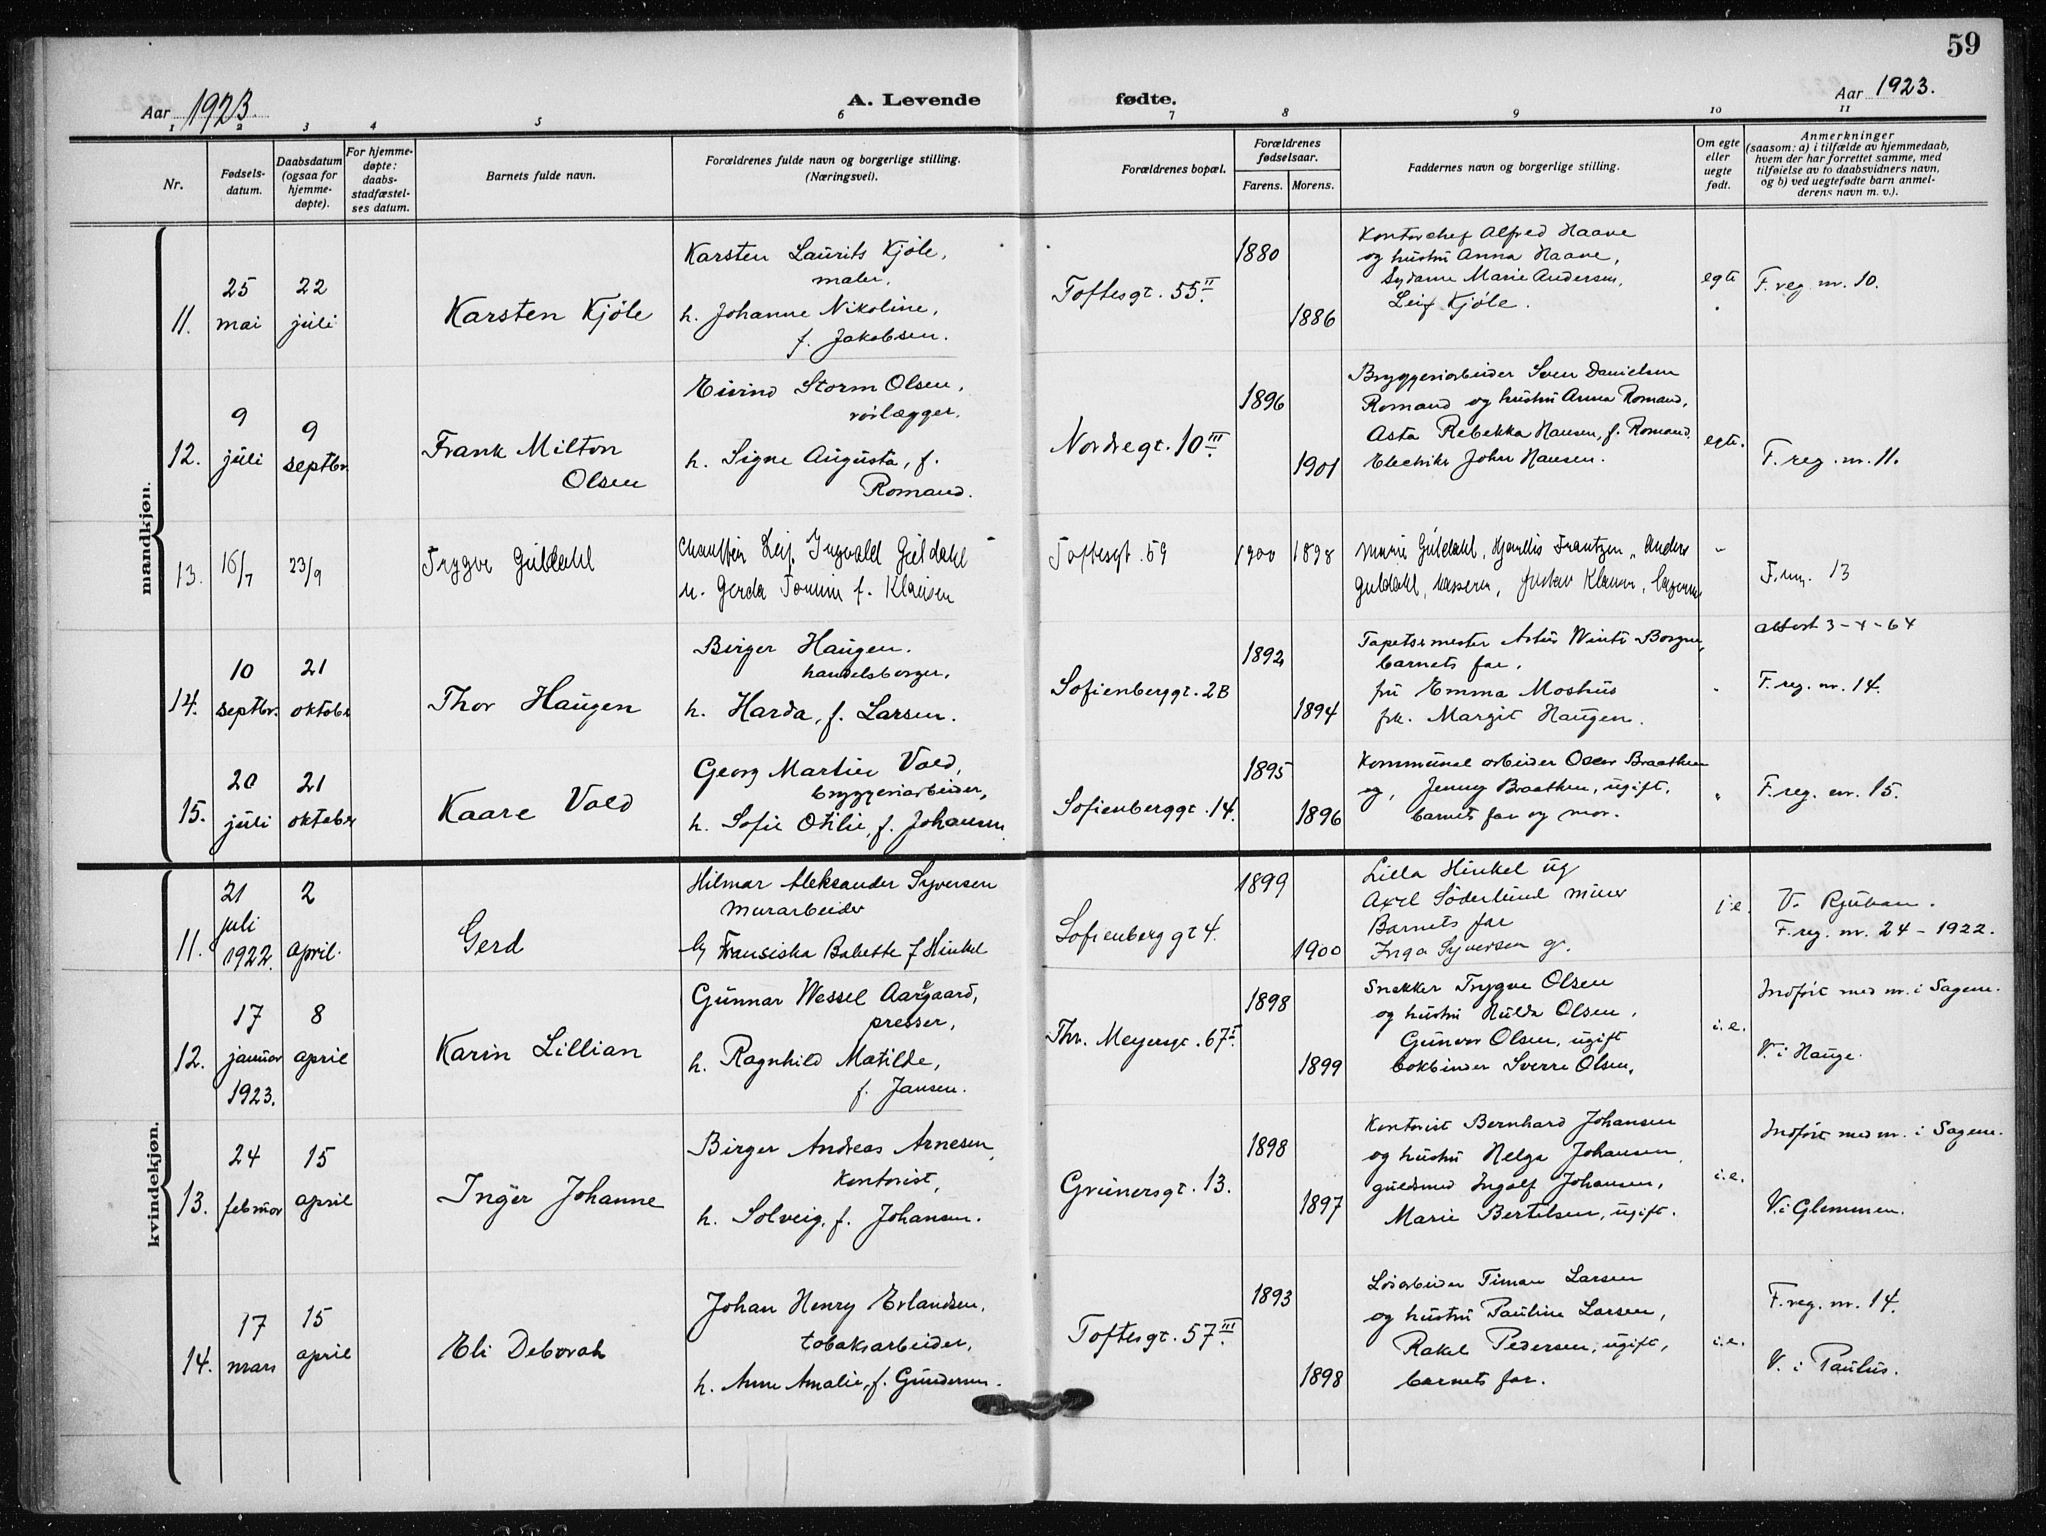 59
Aar 1923.
A. Levende fødte.
Aar 1923.
1 2 3 4 5 6 7 8 9 10 11
Nr.
Fødsels-
datum.
Daabsdatum
(ogsaa for
hjemme-
døpte).
For hjemme-
døpte:
daabs-
stadfæstel-
ses datum.
Barnets fulde navn.
Forældrenes fulde navn og borgerlige stilling.
(Næringsvei).
Forældrenes bopæl.
Forældrenes
fødselsaar.
Farens. Morens.
Faddernes navn og borgerlige stilling.
Om egte
eller
uegte
født.
Anmerkninger
(saasom: a) i tilfælde av hjemmedaab,
hvem der har forrettet samme, med
tilføielse av to daabsvidners navn,
og b) ved uegtefødte barn anmel-
derens navn m. v.).
mandkjøn.
11.
25
mai
22
juli
Karsten Kjöle
Karsten Laurits Kjöle,
maler,
h. Johanne Nikoline,
f. Jakobsen.
Toftesgt. 55 II.
1880
1886
Kontorchef Alfred Haave
og hustru Anna Haave,
Marie Andersen,
Leif Kjöle.
egte
F. reg. nr. 10.
12.
9
juli
9
septbr.
Frank Milton
Olsen
Eivind Storm Olsen,
rörlægger,
h. Signe Augusta, f.
Romand.
Nordregt. 10 III.
1896
1901
Bryggeriarbeider Sven Danielsen
Romand og hustru Anna Romand,
Asta Rebekka Hansen, f. Romand.
Elektriker John Hansen.
egte.
F. reg. nr. 11.
13.
16/7
23/9
Trygve Guldahl
Leif Ingvald Guldahl
Gerda f. Klausen
Toftesgt. 59
1900
1898
Marie Guldahl, Frantzen, Anders
Guldahl, Gustav
"
F. reg. 13
14.
10
septbr.
21
oktober
Thor Haugen
Birger Haugen.
handelsborger,
h. Harda, f. Larsen.
Sofienberggt. 2B
1892
1894
Tapetsermester
barnets far.
fru Emma Moshus
frk. Margit Haugen.
"
3-4-64
F. reg. nr. 14.
15.
20
juli
21
oktober
Kaare Vold
Georg Martin Vold,
bryggeriarbeider,
h. Sofie Otilie, f. Johansen.
Sofienberggt. 14.
1895
1896
Kommunal arbeider Oscar Braathen
og, Jenny Braathen, ugift,
barnets far og mor.
"
F. reg. nr. 15.
kvindekjøn.
11.
21
juli
1922.
2
april.
Gerd
Hilmar Aleksander Syversen
Murarbeider
Fransiska Babette f Hinkel
Sofienberg gt 4.
1899
1900
Lilla Hinkel ug
Axel Söderlund murer
Barnets far
Inga Syversen g.
i e.
V. Rjukan.
F. reg. nr. 24 - 1922.
12.
17
januar
1923.
8
april
Karin Lillian
Gunnar Wessel Aargaard,
presser,
h. Ragnhild Matilde,
f. Jansen.
Thv. Meyersgt. 67 I.
1898
1899
Snekker Trygve Olsen
og hustru Hulda Olsen,
Gunvor Olsen, ugift
bokbinder Sverre Olsen,
i.e.
Indfört med nr. i Sagene.
V. i Hauge.
13.
24
februar
15
april
Inger Johanne
Birger Andreas Arnesen,
kontorist,
h. Solveig, f. Johansen.
Grünersgt. 13.
1898
1897
Kontorist Bernhard Johansen
og hustru Helga Johansen,
guldsmed Ingolf Johansen,
Marie Bertelsen, ugift.
i.e.
Indfört med nr. i Sagene.
V. i Glemmen.
14.
17
mars
15
april
Eli Deborah
Johan Henry Erlandsen,
tobaksarbeider,
h. Anne Amalie, f. Gundersen.
Toftesgt. 57 III.
1893
1898
Lösarbeider Timan Larsen
og hustru Pauline Larsen,
Rakel Pedersen, ugift,
barnets far.
i.e.
F. reg. nr. 14.
V. i Paulus.